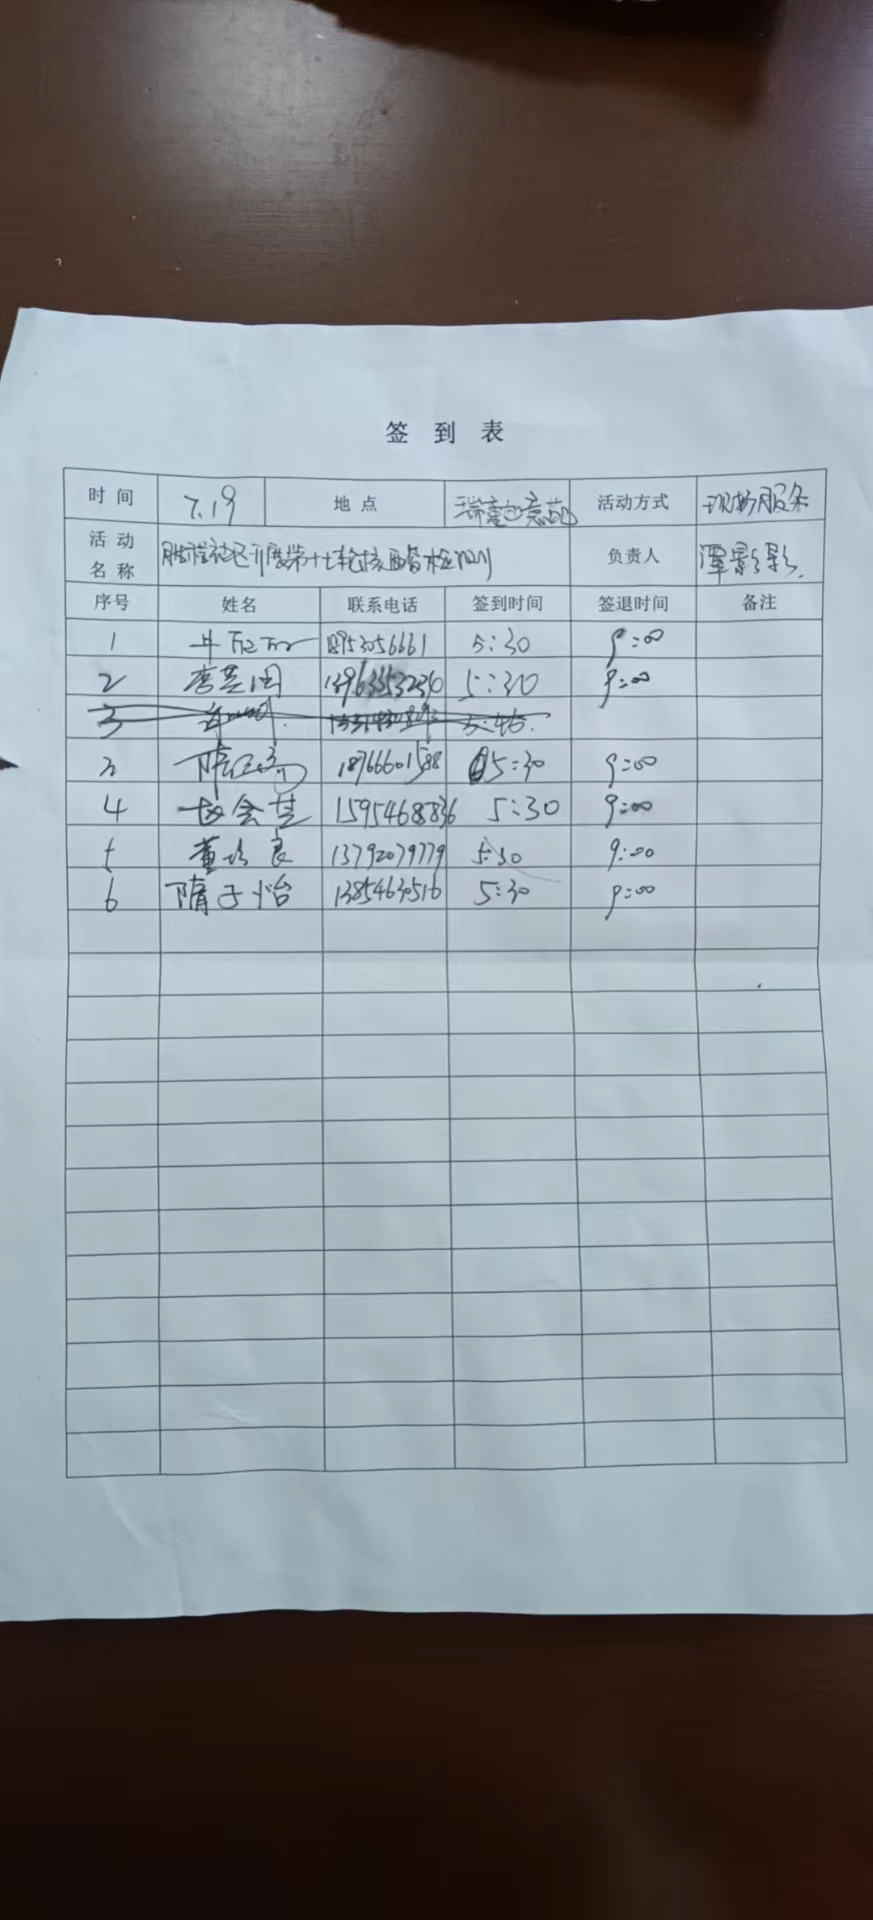 签到表
时间 7.19 地点 活动方式 现场服务
活动名称 社区开展第十七轮核酸检测 负责人 覃影影
序号 姓名 联系电话 签到时间 签退时间 备注
1 18953056661 5:30 9:00
2 李芝国 5:30 9:00
3 5:45
3 18766601588 5:30 9:00
4 赵会芝 15954688836 5:30 9:00
5 董良 13792079779 5:30 9:00
6 隋子怡 13854630516 5:30 9:00